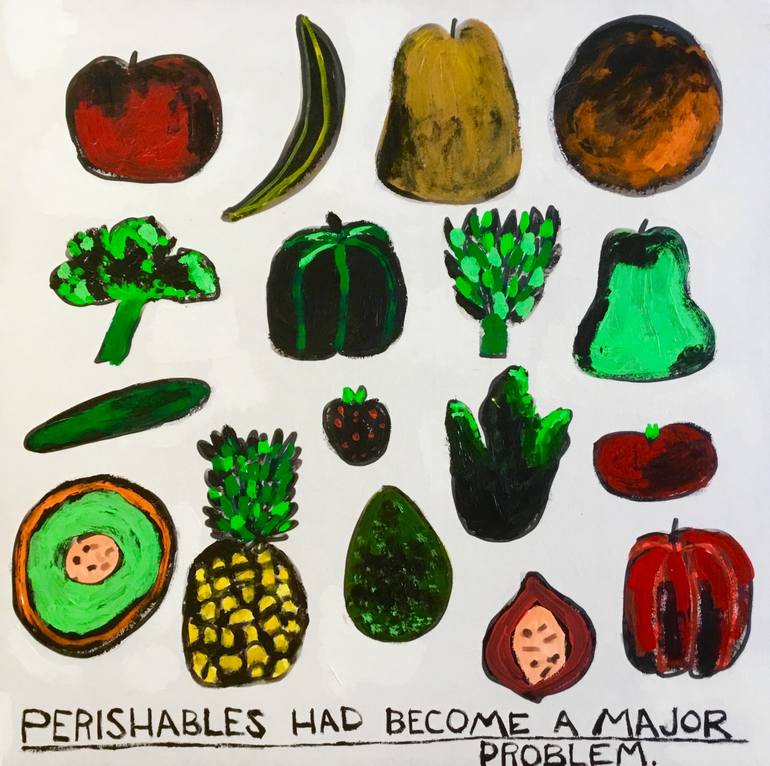 PERISHABLES HAD BECOME A MAJOR
PROBLEM.